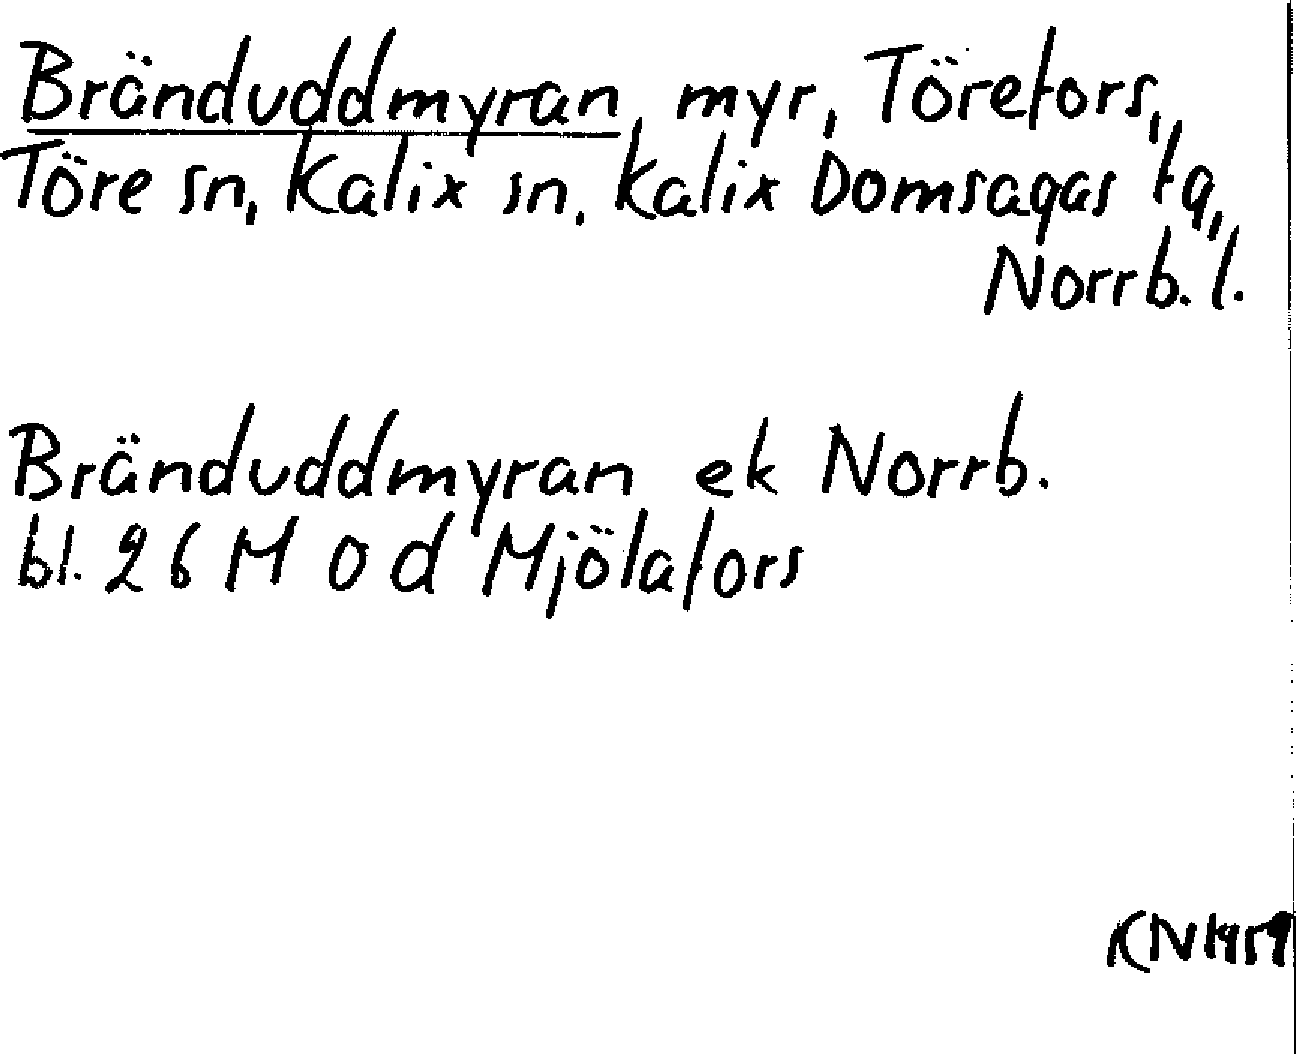 Bränduddmyran, myr, Törefors,
Töre sn, Kalix sn. Kalix Domsagas tg,
Norrb. l.
Bränduddmyran ek Norrb.
bl. 26 M o d Mjölafors
KN 1959